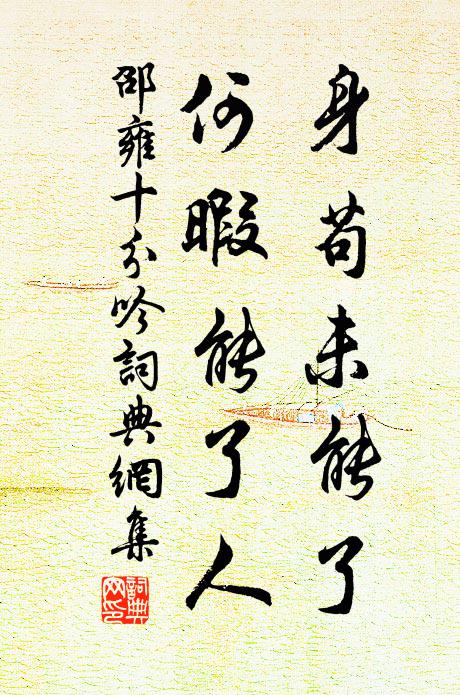 身苟未能了
何暇能了人
邵雍十分吟詞典網集
詞典网印